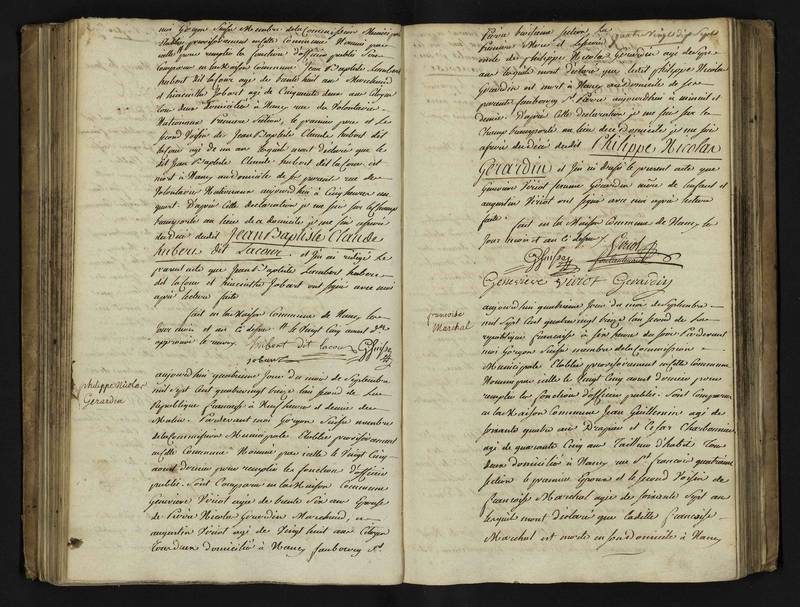 moi Goryon Suisse Membre de la Commission Municipale
Etablie provisoirement en cette Commune Nommé par
celle pour remplir les fonctions d'officier public Sont
Comparus en la Maison Commune Jean Baptiste Lambert
hubert dit lacour agé de trente huit ans Marchand
et hiacinthe Jobart agé de Cinquante deux ans Citoyen
tous deux Domiciliés à Nancy rue des Volontaires
Nationaux Premiere Section, le premier pere et le
Second Voisin de Jean Baptiste Claude hubert dit
lacour agé de un an lesquels m'ont declaré que le
dit Jean Baptiste Claude hubert dit lacour est
mort à Nancy au domicile de ses parents rue des
Volontaires Nationaux aujourd'hui à Cinq heures un
quart. D'après cette declaration je me suis sur le champ
transporté au lieu de ce domicile je me suis assuré
du décès dudit Jean Baptiste Claude
hubert dit Lacour. et j'en ai rédigé le
present acte que Jean Baptiste Lambert hubert
dit lacour et hiacinthe Jobart ont signé avec moi
après lecture faite
fait en la Maison Commune de Nancy les
jour mois et an ci dessus le Vingt Cinq aoust
approuvé le renvoy. hubert dit lacour GSuisse
Jobart
philippe Nicolas
Gerardin
aujourd'hui quatrieme Jour du mois de Septembre
mil Sept Cent quatre vingt treize l'an second de la
Republique Francaise à Neuf heures et demie du
Matin. Pardevant moi Goryon Suisse membre
de la Commission Municipale Etablie provisoirement
en cette Commune Nommé par celle le Vingt Cinq
aoust dernier pour remplir les fonctions d'officier
public. Sont Comparus en la Maison Commune
Genevieve Viriot agée de trente Six ans Epouse
de Pierre Nicolas Gerardin Marchand, et
augustin Viriot agé de Vingt huit ans Citoyen
tous deux domiciliés à Nancy faubourg St.
Pierre huitieme section la
premiere Mere et le second
oncle de philippe Nicolas Gerardin agé de
ans lesquels m'ont declaré que ledit philippe Nicolas
Gerardin est mort à Nancy au domicile de ses
parents faubourg St. Pierre aujourd'hui à minuit et
demie D'après cette declaration je me suis sur le
Champ transporté au lieu de ce domicile je me suis
assuré du décès dudit Philippe Nicolas
Gerardin et j'en ai dressé le present acte que
Genevieve Viriot femme Gerardin mere de l'enfant et
augustin Viriot ont signé avec moi après lecture
faite.
fait en la Maison Commune de Nancy les
jour mois et an ci dessus. Viriot
GSuisse
Genevieve viriot Gerardin
francoise
Marchal
aujourd'hui quatrieme Jour du mois de Septembre
mil Sept Cent quatre vingt treize l'an second de la
republique francaise à six heures du soir Pardevant
moi Goryon Suisse membre de la Commission
Municipale Etablie provisoirement en cette Commune
Nommé par celle le Vingt Cinq aoust dernier pour
remplir les fonctions d'officier public. Sont Comparus
en la Maison Commune Jean Guillemin agé de
soixante quatre ans Drapier et Cesar Charbonnier
agé de quarante Cinq ans Tailleur d'habits tous
deux domiciliés à Nancy rue St. francois quatrieme
Section le premier Epoux et le second Voisin de
francoise Marchal agée de soixante Sept ans
lesquels m'ont déclaré que ladite francoise
Marchal est morte en son domicile à Nancy